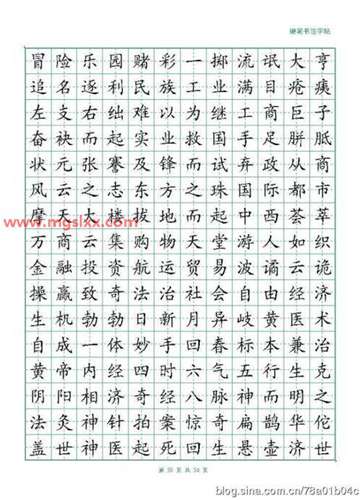 硬笔书法字帖
冒险乐园赌彩一掷流氓大亨
追名逐利民族工业满目疮痍
左支右绌难以为继工商巨子
奋袂而起实业救国手足胼胝
状元张謇及锋而试弃政从商
风云之志东方之珠国际都市
摩天大楼拔地而起中西荟萃
万商云集购物天堂游人如织
金融投资航运贸易波谲云诡
操赢致奇法治社会自由经济
生机勃勃日新月异岐黄医术
自成一体妙手回春标本兼治
黄帝内经四时六气五行生克
阴阳相济奇经八脉神而明之
法灸神针拍案惊奇扁鹊华佗
盖世神医起死回生悬壶济世
www.mgslxx.com
blog.sina.com.cn/78a01b04c